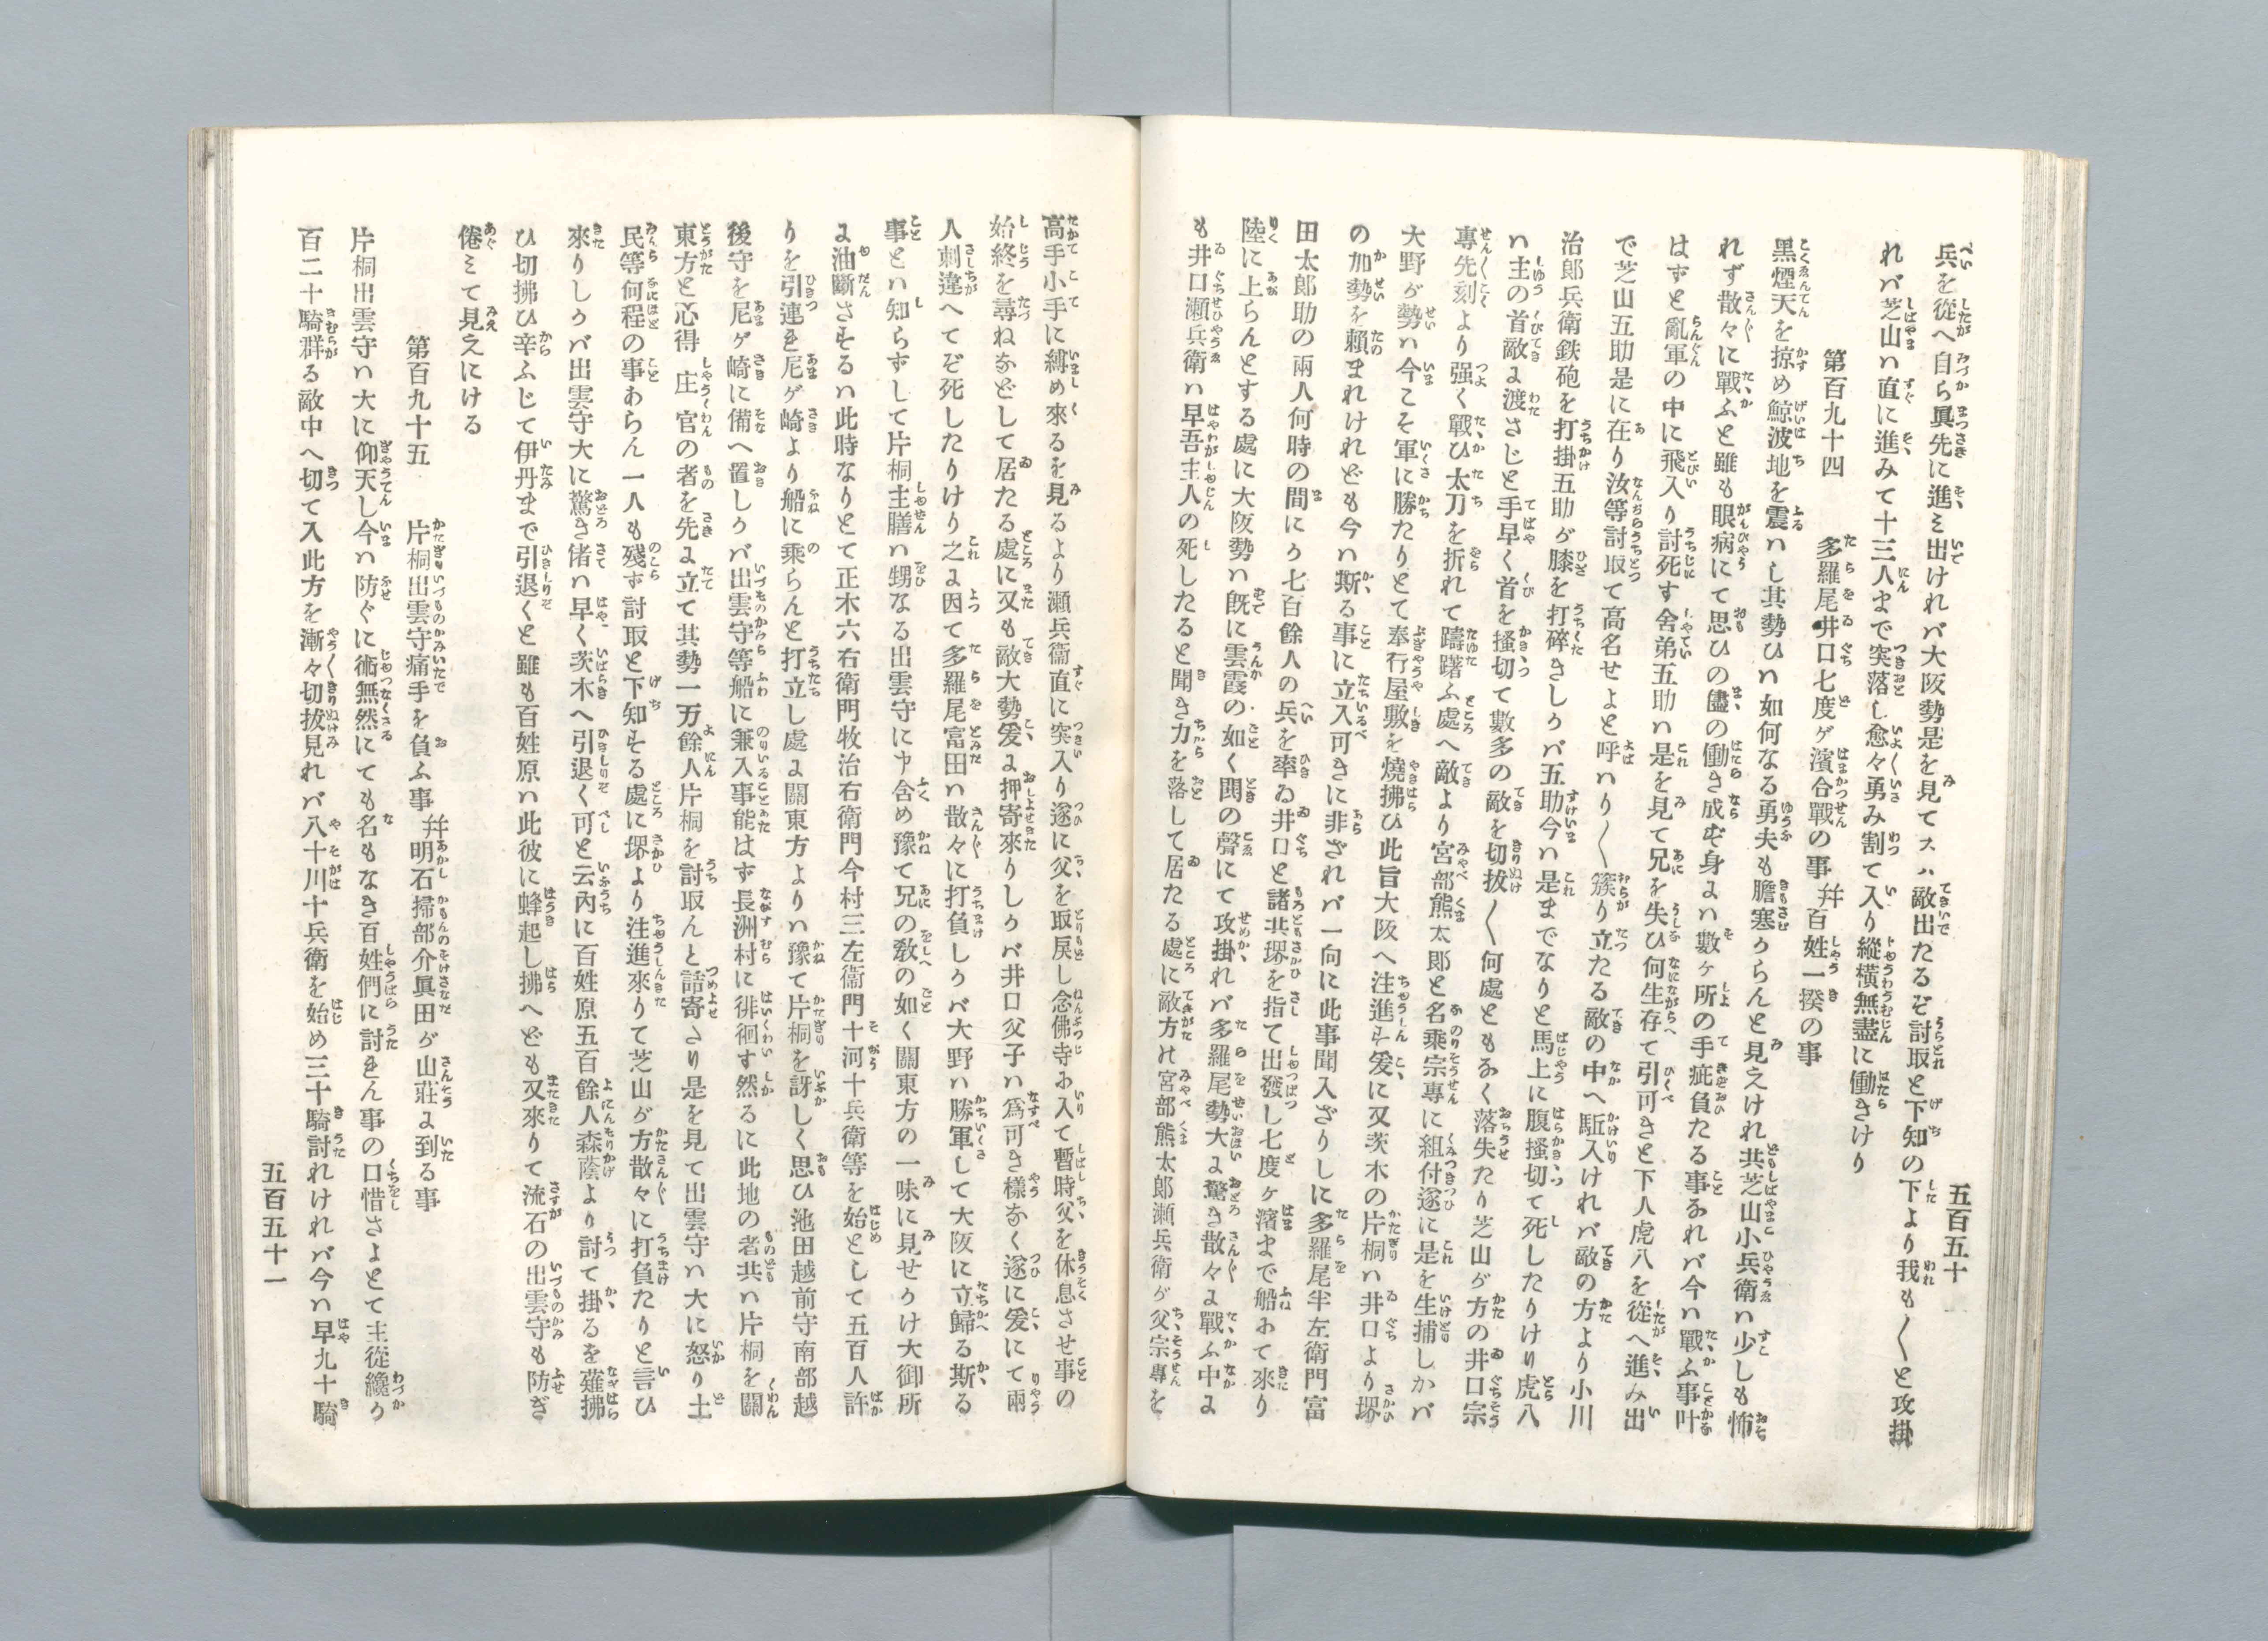 五百五十
兵を從へ自ら眞先に進ミ出けれバ大阪勢是を見てスハ敵出たるぞ討取と下知の下より我も〳〵と攻掛
れバ芝山ハ直に進みて十三人まで突落し愈々勇み割て入り縱横無盡に働きけり
第百九十四　多羅尾井口七度ヶ濱合戰の事并百姓一揆の事
黑煙天を掠め鯨波地を震ハし其勢ひハ如何なる勇夫も膽塞からんと見えけれ共芝山小兵衛ハ少しも怖
れず散々に戰ふと雖も眼病にて思ひの儘の働き成ず身よハ數ヶ所の手疵負たる事なれバ今ハ戰ふ事叶
はずと亂軍の中に飛入り討死す舍弟五助ハ是を見て兄を失ひ何生存て引可きと下人虎八を從へ進み出
で芝山五助是に在り汝等討取て高名せよと呼ハり〳〵簇り立たる敵の中へ駈入けれバ敵の方より小川
治郎兵衛鉄砲を打掛五助が膝を打碎きしかバ五助今ハ是までなりと馬上に腹搔切て死したりけり虎八
ハ主の首敵よ渡さじと手早く首を搔切て數多の敵を切拔〳〵何處ともなく落失たり芝山が方の井口宗
專先刻より强く戰ひ太刀を折れて躊躇ふ處へ敵より宮部熊太郎と名乘宗專に組付遂に是を生捕しかバ
大野が勢ハ今こそ軍に勝たりとて奉行屋敷を燒拂ひ此旨大阪へ注進す爰に又茨木の片桐ハ井口より堺
の加勢を賴まれけれども今ハ斯る事に立入可きに非ざれバ一向に此事聞入ざりしに多羅尾半左衛門富
田太郎助の兩人何時の間にか七百餘人の兵を率ゐ井口と諸共堺を指て出發し七度ヶ濱まで船にて來り
陸に上らんとする處に大阪勢ハ既に雲霞の如く鬨の聲にて攻掛れバ多羅尾勢大よ驚き散々よ戰ふ中よ
も井口瀬兵衛ハ早吾主人の死したると聞き力を落して居たる處に敵方の宮部熊太郎瀬兵衛が父宗專を
高手小手に縛め來るを見るより瀬兵衞直に突入り遂に父を取戻し念佛寺に入て暫時父を休息させ事の
始終を尋ねなどして居たる處に又も敵大勢爰よ押寄來りしかバ井口父子ハ爲可き樣なく遂に爰にて兩
人刺違へてぞ死したりけり之よ因て多羅尾富田ハ散々に打負しかバ大野ハ勝軍して大阪に立歸る斯る
事とハ知らずして片桐主膳ハ甥なる出雲守に申含め豫て兄の敎の如く關東方の一味に見せかけ大御所
よ油斷させるハ此時なりとて正木六右衛門牧治右衛門今村三左衞門十河十兵衛等を始めとして五百人許
りを引連き尼ヶ崎より船に乘らんと打立し處よ關東方よりハ豫て片桐を訝しく思ひ池田越前守南部越
後守を尼ヶ崎に備へ置しかバ出雲守等船に乘入事能はず長洲村に徘徊す然るに此地の者共ハ片桐を關
東方と心得庄官の者を先よ立て其勢一万餘人片桐を討取んと詰寄さり是を見て出雲守ハ大に怒り土
民等何程の事あらん一人も殘ず討取と下知する處に堺より注進來りて芝山が方散々に打負たりと言ひ
來りしかバ出雲守大に驚き偖ハ早く茨木へ引退く可と云內に百姓原五百餘人森蔭より討て掛るを薙拂
ひ切拂ひ辛ふじて伊丹まで引退くと雖も百姓原ハ此彼に蜂起し拂へども又來りて流石の出雲守も防ぎ
倦ミて見えにける
第百九十五　片桐出雲守痛手を負ふ事并明石掃部介眞田が山莊よ到る事
片桐出雲守ハ大に仰天し今ハ防ぐに術無然にても名もなき百姓們に討きん事の口惜さよとて主從纔か
百二十騎群る敵中へ切て入此方を漸々切拔見れバ八十川十兵衛を始め三十騎討れけれバ今ハ早九十騎
五百五十一